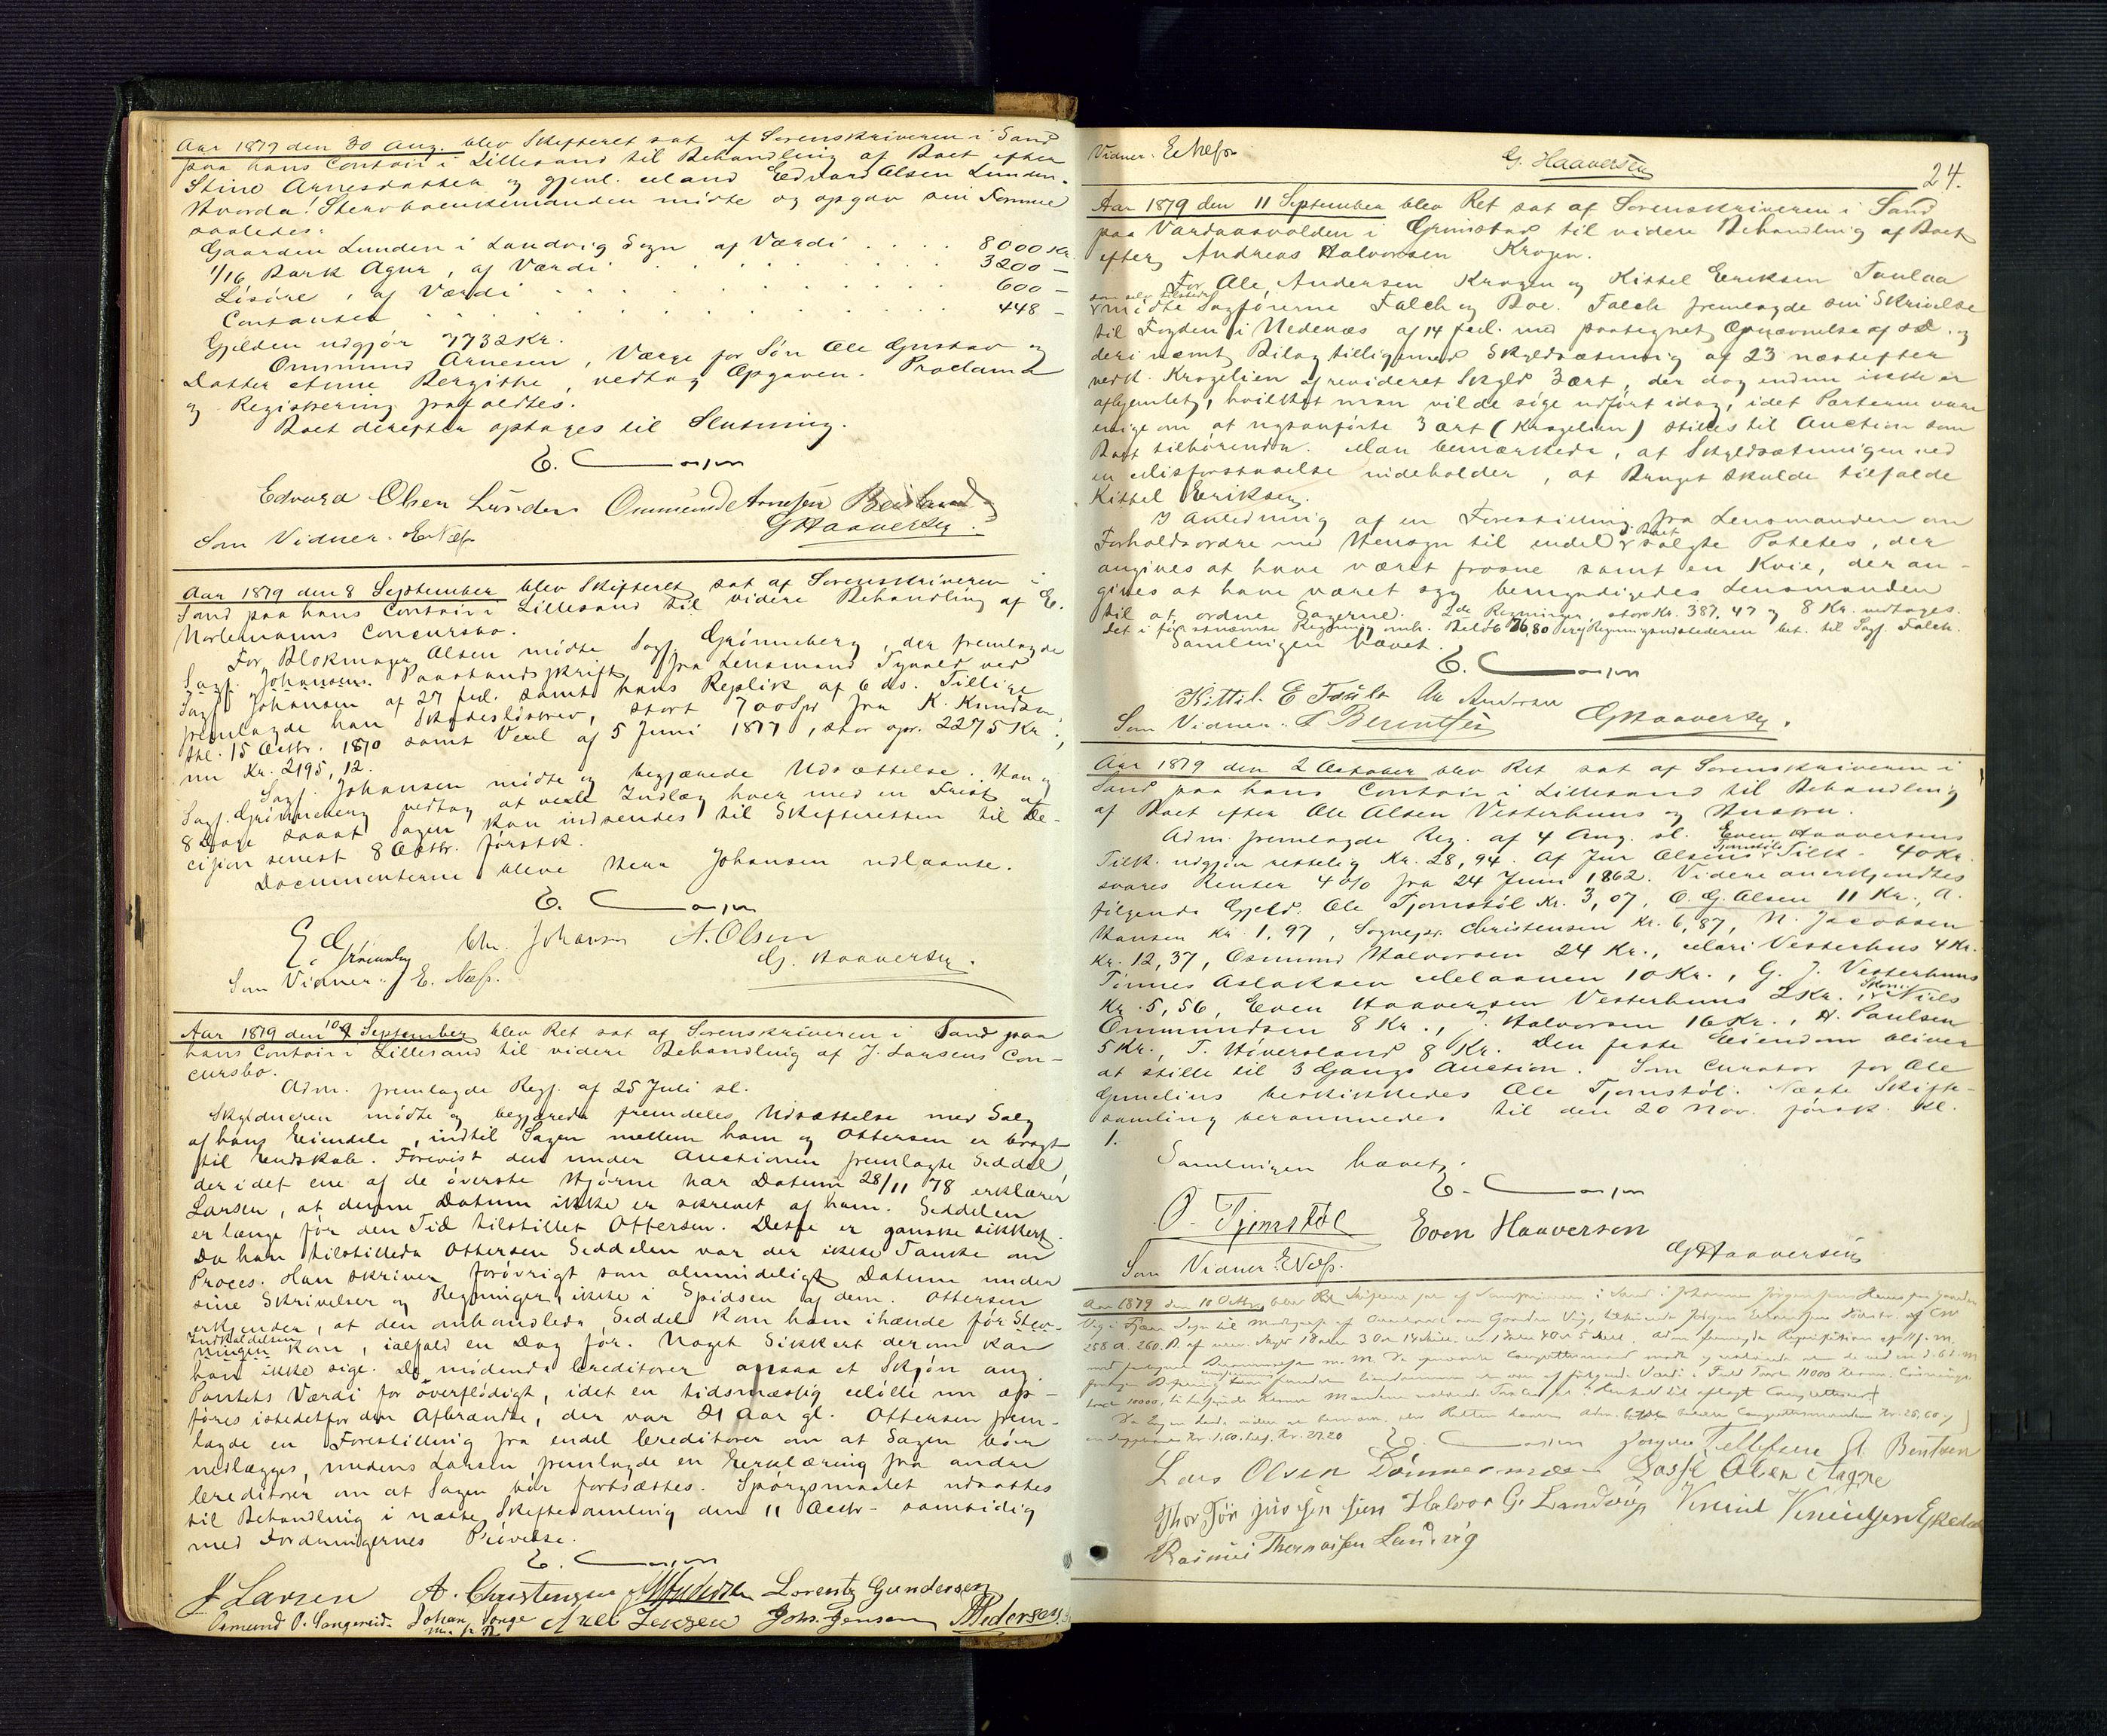 Aar 1879 den 30 Aug. blev Skifteret sat af Sorenskriveren i Sand
paa hans Contoir i Lillesand til Behandling af Boet efter
Stine Arnesdatter og gjenl. Mand Edvard Olsen Lunden.
Hvorda! Stervboenkemanden mödte og opgav sin Formue
saaledes:
Gaarden Lunden i Landvig Sogn af Værdi . . . . 8000 Kr.
1/16 Bark Agur, af Værdi . . . . 3200 -
Lösöre, af Værdi . . . . 600 -
Contanter . . . . 448 -
Gjelden udgjör 7732 Kr.
Ommund Arnesen, Værge for Sön Ole Gustav og
Datter Anne Bergithe, vedtog Opgaven. Proclama
og Registrering frafaldtes.
Boet derefter optages til Slutning.
E.
Edvard Olsen Lunden Ommund Arnesen Beisland
Som Vidner. E Næss GHaaversen.
Aar 1879 den 8 September blev Skifteret sat af Sorenskriveren i
Sand paa hans Contoir i Lillesand til videre Behandling af E.
Mortemanns Concursbo.
For Blokmager Olsen mödte Sagf. Grönneberg, der fremlagde
Sagf. Johansens Paastandsskrift fra Lensmand ved
Sagf. Johansen af 27 f.d. samt hans Replik af 6 ds. Tillige
fremlagde han Skadeslösbrev, stort 700 Spd fra K. Knudsen,
thl. 15 Octbr. 1870 samt Vexel af 5 Juni 1877, stor opr. 2275 Kr.,
nu Kr. 2195,12.
Sagf. Johansen mödte og begjærede Udsættelse. Han og
Sagf. Grönneberg vedtog at vexle Indlæg hver med en Frist af
8 Dage saaat Sagen kan indsendes til Skifteretten til De-
cision senest 8 Octbr. förstk.
Documenterne bleve Herr Johansen udlaante.
E.
E. Grönneberg Chr. Johansen A. Olsen
Som Vidner. E. Næss. G. Haaversen.
Aar 1879 den 10 September blev Ret sat af Sorenskriveren i Sand paa
hans Contoir i Lillesand til videre Behandling af J. Larsens Con-
cursbo.
Adm. fremlagde Regj. af 25 Juli sl.
Skyldneren mödte og begjærede fremdeles Udsættelse med Salg
af hans Eiendele, indtil Sagen mellem ham og Ottersen er bragt
til Endskab. Forevist den under Auctionen fremlagte Seddel,
der i det ene af de överste Hjörne har Datum 28/11 78 erklærer
Larsen, at denne Datum ikke er skrevet af ham. Seddelen
er længe för den Tid tilstillet Ottersen. Dette er ganske sikkert.
Da han tilstillede Ottersen Seddelen var der ikke Tanke om
Proces. Han skriver forövrigt som almindeligt Datum under
sine Skrivelser og Regninger, ikke i Spidsen af dem. Ottersen
erkjender, at den omhandlede Seddel kom ham ihænde för
Indkaldelsen kom, ialfald en Dag för. Noget Sikkert derom kan
han ikke sige. De mödende Creditorer ansaa et Skjön ang.
Pantets Værdi for överflödigt, idet en tidsmæssig Mölle nu op-
föres istedetfor den Afbrændte, der var 21 Aar gl. Ottersen frem-
lagde en Forestilling fra endel Creditorer om at Sagen bör
nedlægges, medens Larsen fremlagde en Erklæring fra andre
Creditorer om at Sagen bör fortsættes. Spörgsmaalet udsattes
til Behandling i næste Skiftesamling den 11 Octbr. samtidig
med Fordringernes Prövelse.
E.
J Larsen A. Christensen Lorentz Gundersen
Osmund P. Langereid Johan Longe Axel Jensen Johs. Jensen Pedersen
Vidner. E Næss G. Haaversen
24.
Aar 1879 den 11 September blev Ret sat af Sorenskriveren i Sand
paa Vardaasvolden i Grimstad til videre Behandling af Boet
efter Andreas Halvorsen Krogen.
For Ole Andersen Krogen og Kittel Eriksen Taulaa
som selv tilstede
mödte Sagförerne Falch og Boe. Falch fremlagde sin Skrivelse
til Fogden i Nedenæs af 14 f.d. med paategnet Opnævnelse af s.D. og
deri nævnt Bilag tilligemed Skyldsætning af 23 næstefter
vedk. Krogelien af revideret Skyld 3 ört, der dog endnu ikke er
afhjemlet, hvilket man vilde söge udfört idag, idet Parterne vare
enige om at nysanförte 3 ört (Krogelien) stilles til Auction som
Boet tilhörende. Man bemærkede, at Skyldsætningen ved
en Misforstaaelse indeholder, at Bruget skulde tilfalde
Kittel Eriksen.
I Anledning af en Forestilling fra Lensmanden om
Forholdsordre med Hensyn til endel i Boet solgte Potetes, der
angives at have været frosne samt en Kvie, der an-
gives at have været syg bemyndigedes Lensmanden
til at ordne Sagerne. 2de Regninger, store Kr. 387,47 og 8 Kr. vedtoges.
Det i förstnævnte Regning omh. Belöb 76,80 er Regningsudstederen bet. til Sagf. Falch.
Samlingen hævet.
E.
Kittil E Taule Ole Andersen
Som Vidner. Berentsen GHaaversen.
Aar 1879 den 2 October blev Ret sat af Sorenskriveren i
Sand paa hans Contoir i Lillesand til Behandling
af Boet efter Ole Olsen Vesterhuus og Hustru.
Adm. fremlagde Reg. af 4 Aug. sl. Even Haaversens
Tilk. udgjör rettelig Kr. 28,94. Af Jens Olsens Tjomstöls Tilk. 40 Kr.
svares Renter 4% fra 24 Juni 1862. Videre anerkjendtes
fölgende Gjeld: Ole Tjomstöl Kr. 3,07, O. G. Olsen 11 Kr., A.
Hansen Kr. 1,97, Sognepr. Christensen Kr. 6,87, N. Jacobsen
Kr. 12,37, Osmund Halvorsen 24 Kr., Mari Vesterhus 4 Kr.
Tönnes Aslaksen Melaanen 10 Kr., G. J. Vesterhuus
Kr. 5,56, Even Haaversen Vesterhuus 2 Kr., Niels
Ommundsen 8 Kr., Halvorsen 16 Kr., H. Paulsen
5 Kr., T. Höversland 8 Kr. Den faste Eiendom bliver
at stille til 3 Gangs Auction. Som Curator for Ole
Gumelius beskikkedes Ole Tjomstöl. Næste Skifte-
samling berammedes til den 20 Nov. förstk. Kl.
1.
Samlingen hævet.
E.
O. Tjomstöl Even Haaversen
Som Vidner: E Næss. GHaaversen
Aar 1879 den 10 Octbr. blev Ret
E.
Lars Olsen Tellefsen A. Bentsen
Halvor G. Landvig
Landvig